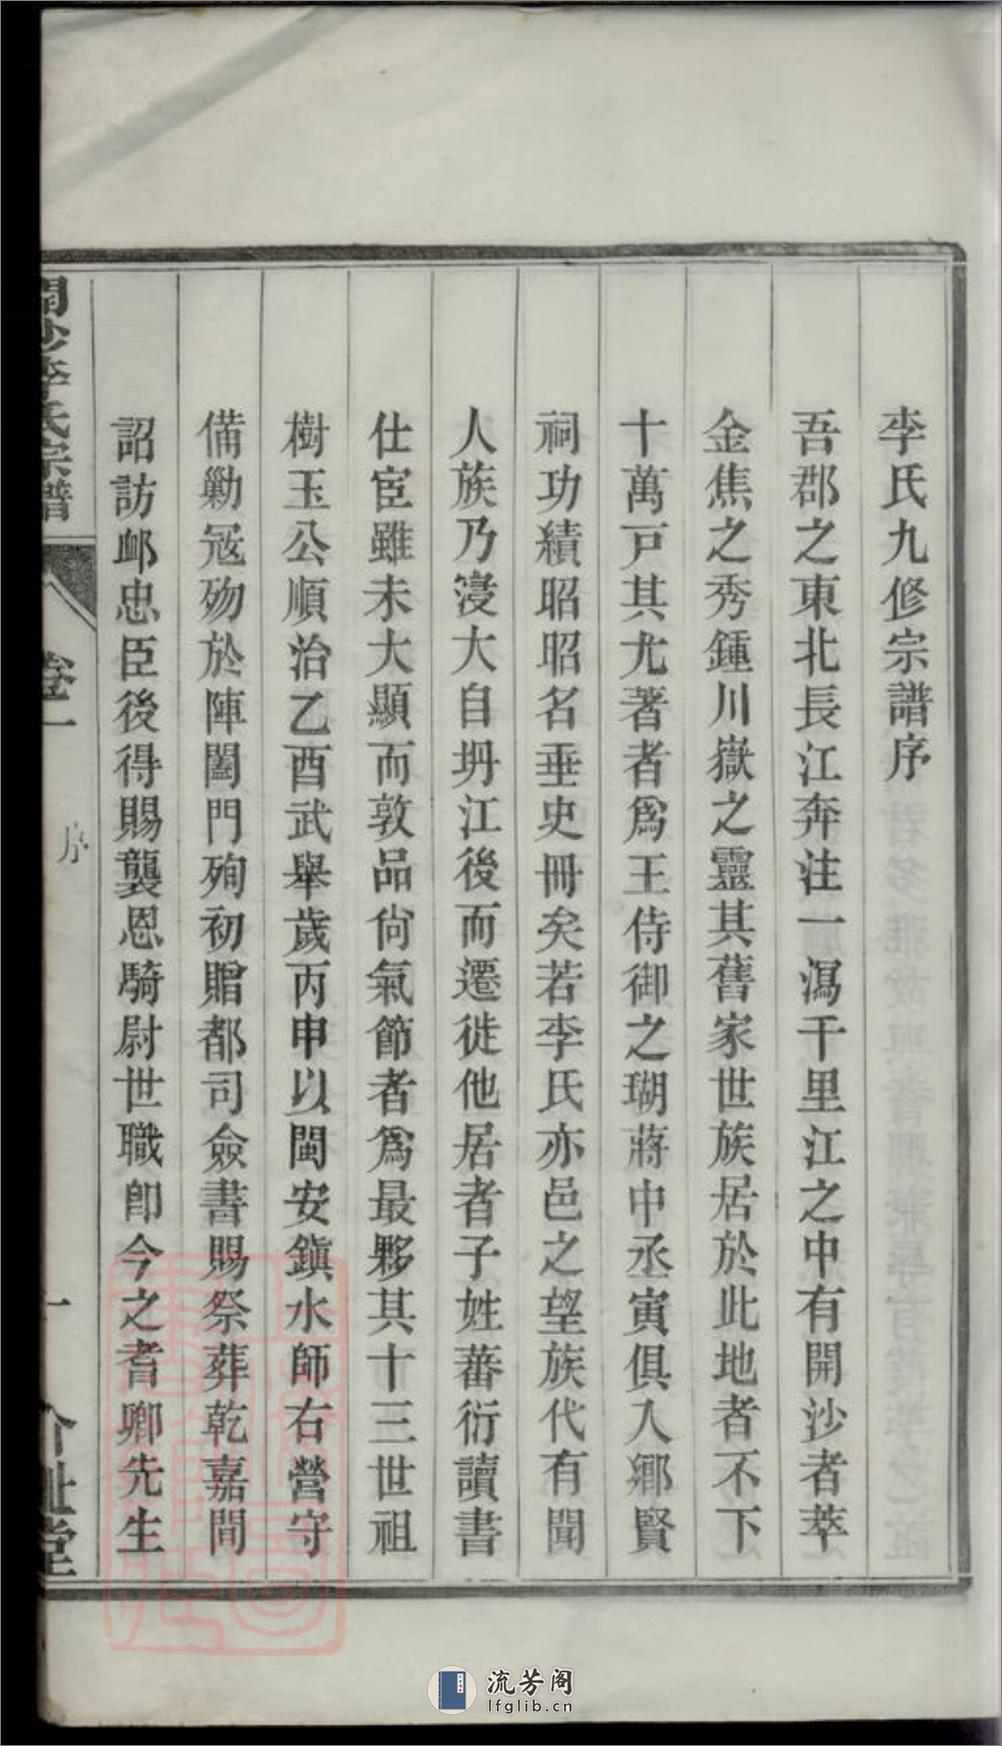 李氏九修宗譜序
吾郡之東北長江奔注一瀉千里江之中有開沙者萃
金焦之秀鍾川嶽之靈其舊家世族居於此地者不下
十萬戸其尤著者爲王侍御之瑚蔣中丞寅俱入鄉賢
祠功績昭昭名垂史冊矣若李氏亦邑之望族代有聞
人族乃寖大自坍江後而遷徙他居者子姓蕃衍讀書
仕宦雖未大顯而敦品尙氣節者爲最夥其十三世祖
樹玉公順治乙酉武舉歲丙申以閩安鎭水師右營守
備勦冦歿於陣闔門殉初贈都司僉書賜祭葬乾嘉間
詔訪邺忠臣後得賜襲恩騎尉世職卽今之耆卿先生
開沙李氏宗譜
卷一
序
一
介祉堂
流芳阁
lfglib.cn